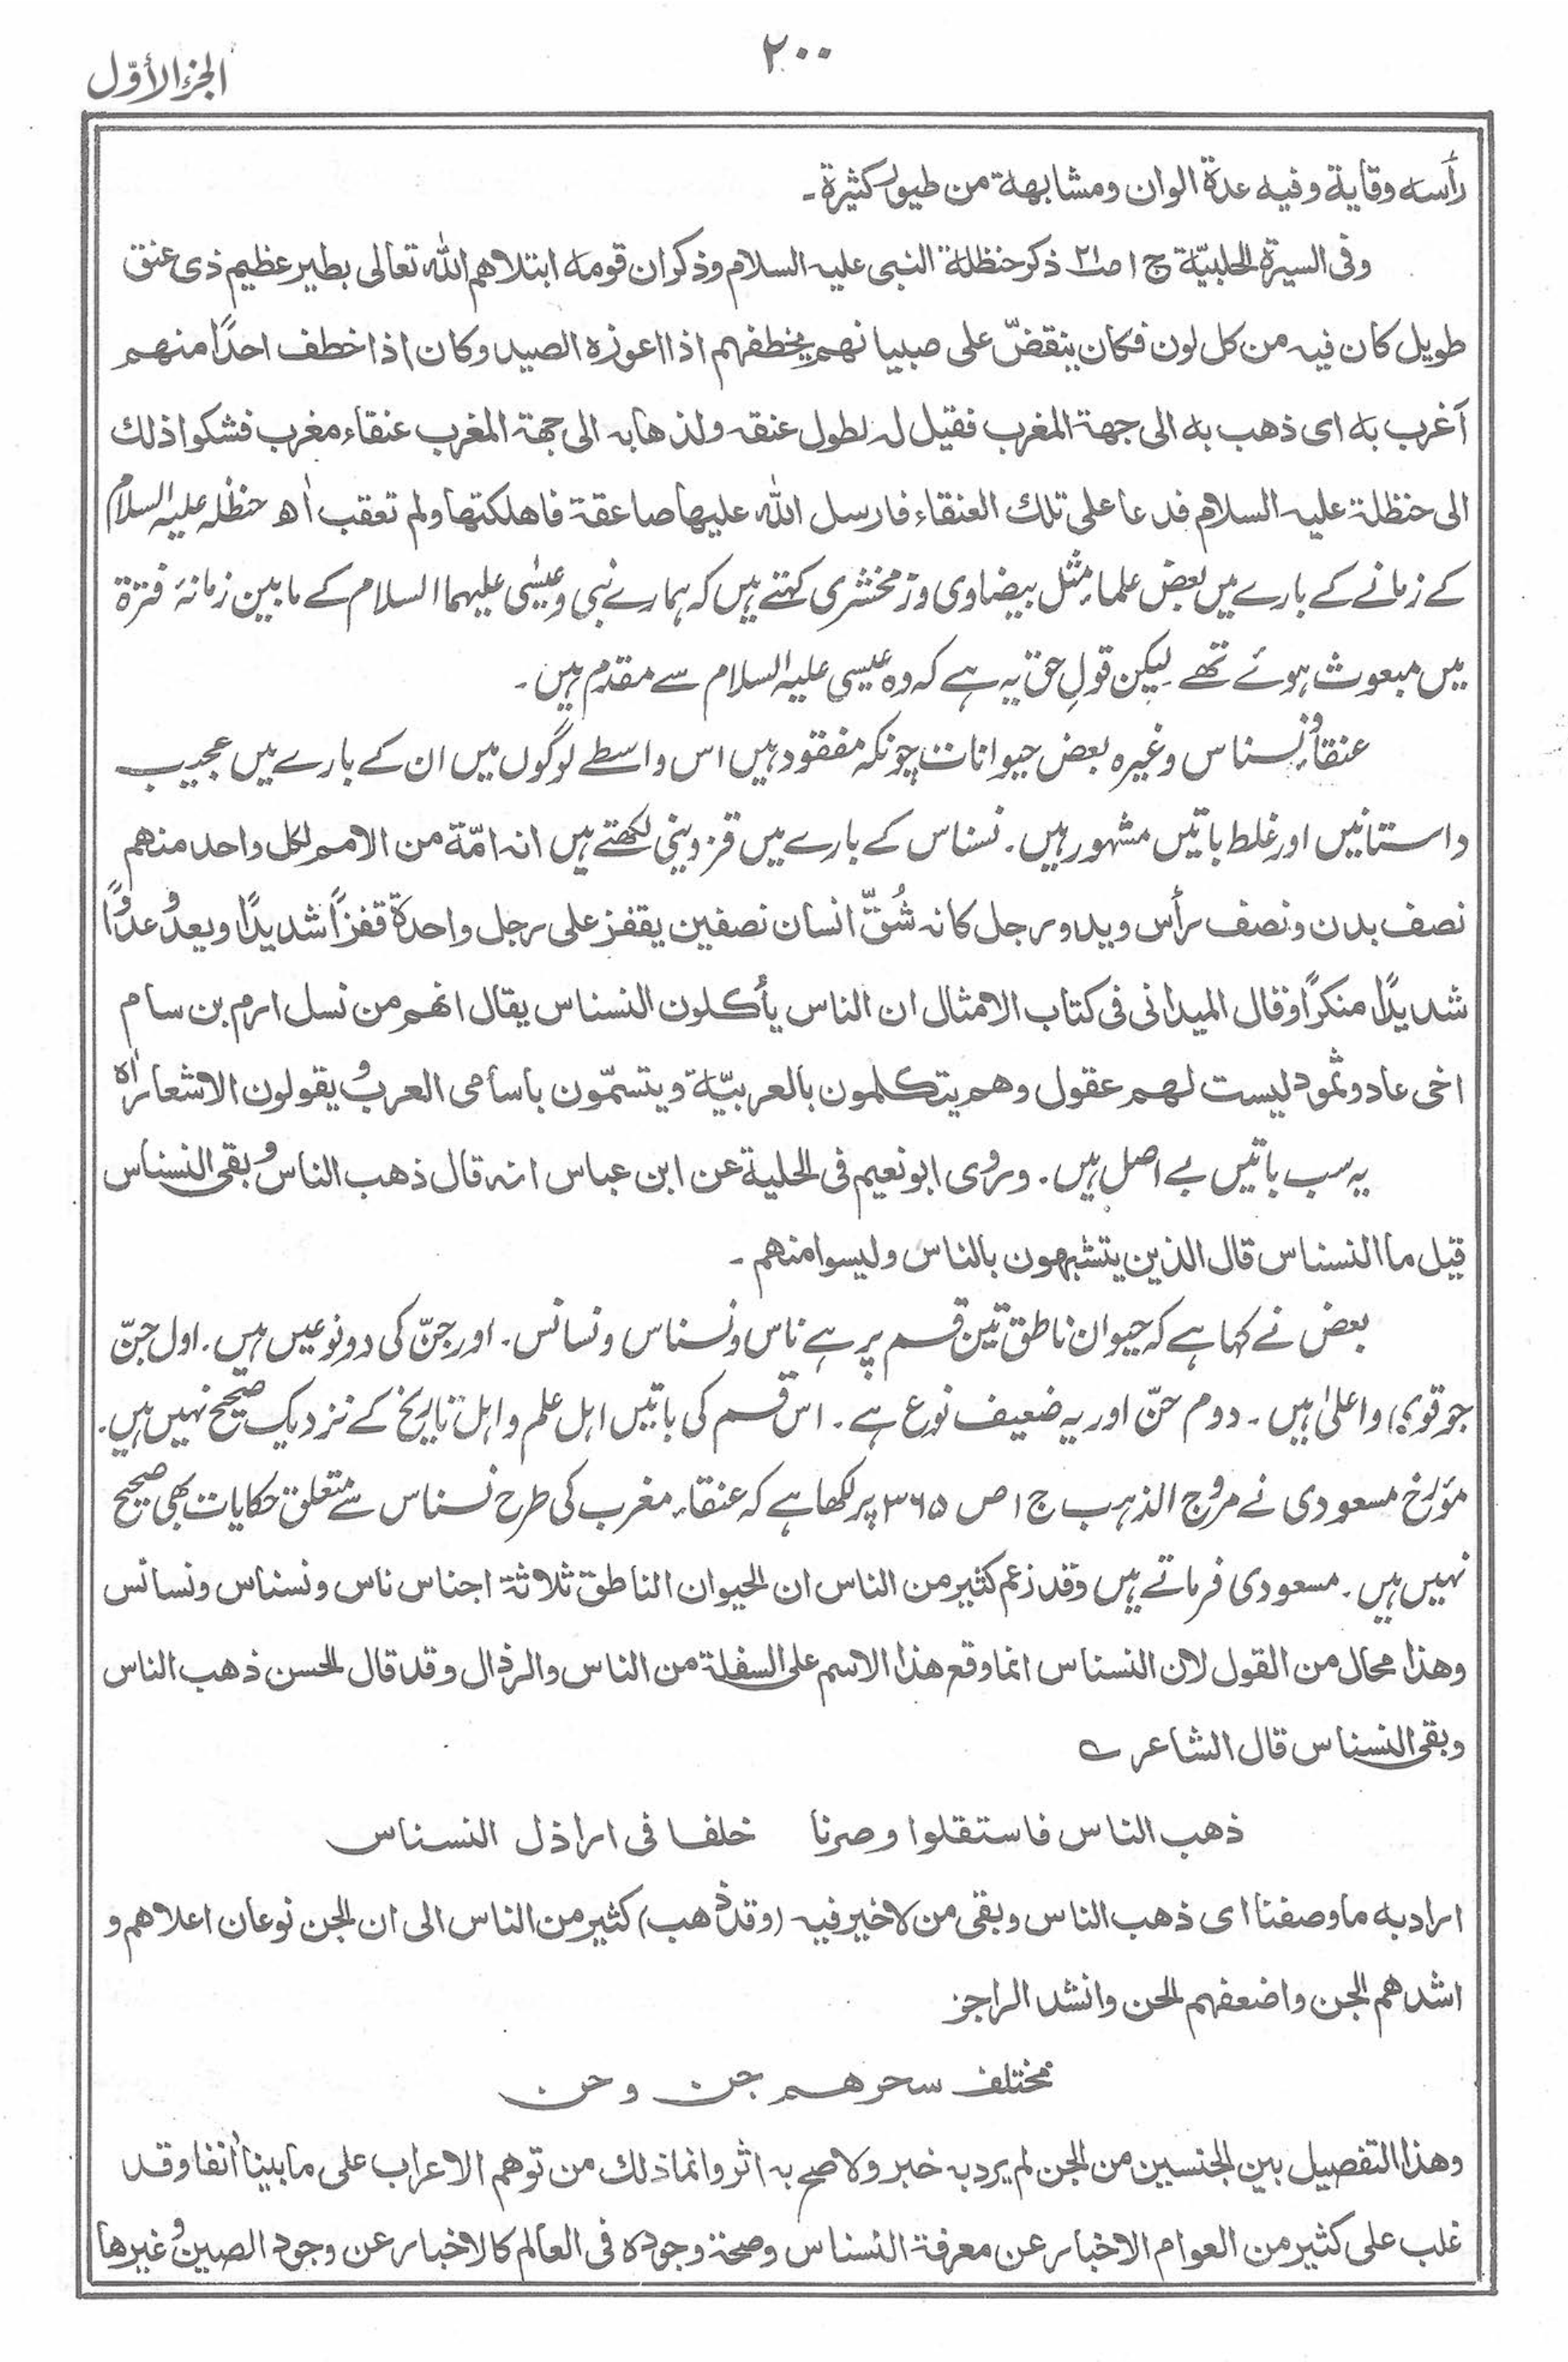 ٢٠٠
الجزء الأوّل
رأسه وقاية وفيه عدة الوان ومشابهة من طيور كثيرة۔
وفی السيرة الحلبيّة ج ١ صـ٢١ ذكر حنظلة النبی عليه السلام وذكر ان قومه ابتلاهم الله تعالى بطير عظيم ذی عنق
طويل كان فيه من كل لون فكان ينقضّ على صبيانهم يخطفهم اذا اعوزه الصيد وكان اذا خطف احدًا منهم
أغرب به ای ذهب به الى جهة المغرب فقيل له لطول عنقه ولذهابه الى جهة المغرب عنقاء مغرب فشكوا ذلك
الى حنظلة عليه السلام فدعا على تلك العنقاء فارسل الله عليها صاعقة فاهلكتها ولم تعقب اھ حنظلہ علیہ السلام
کے زمانے کے بارے میں بعض علماء مثل بیضاوی و زمخشری کہتے ہیں کہ ہمارے نبی و عیسٰی علیہما السلام کے ما بین زمانۂ فترۃ
میں مبعوث ہوئے تھے لیکن قولِ حق یہ ہے کہ وہ عیسی علیہ السلام سے مقدم ہیں۔
عنقاء و نسناس وغیرہ بعض حیوانات چونکہ مفقود ہیں اس واسطے لوگوں میں ان کے بارے میں عجیب
داستانیں اور غلط باتیں مشہور ہیں۔ نسناس کے بارے میں قزوینی لکھتے ہیں انه امّة من الامم لكل واحد منهم
نصف بدن ونصف رأس ويد ورجل كانه شُقّ انسان نصفين يقفز على رجل واحدة قفزًا شديدًا ويعدو عدوًا
شديدًا منكرًا وقال الميدانی فی كتاب الامثال ان الناس يأكلون النسناس يقال انهم من نسل ارم بن سام
اخی عاد وثمود ليست لهم عقول وهم يتكلمون بالعربيّة ويتسمّون بأسامی العرب ويقولون الاشعار اھ
یہ سب باتیں بے اصل ہیں۔ وروی ابو نعیم فی الحلية عن ابن عباس انه قال ذهب الناس وبقی النسناس
قيل ما النسناس قال الذين يتشبهون بالناس وليسوا منهم۔
بعض نے کہا ہے کہ حیوان ناطق تین قسم پر ہے ناس و نسناس و نسانس۔ اور جنّ کی دو نوعیں ہیں۔ اول جنّ
جو قوی و اعلیٰ ہیں۔ دوم حنّ اور یہ ضعیف نوع ہے۔ اس قسم کی باتیں اہل علم و اہل تاریخ کے نزدیک صحیح نہیں ہیں۔
مؤرخ مسعودی نے مروج الذہب ج ١ ص ٣٦٥ پر لکھا ہے کہ عنقاء مغرب کی طرح نسناس سے متعلق حکایات بھی صحیح
نہیں ہیں۔ مسعودی فرماتے ہیں وقد زعم كثير من الناس ان الحيوان الناطق ثلاثة اجناس ناس ونسناس ونسانس
وهذا محال من القول لان النسناس انما وقع هذا الاسم على السفلة من الناس والرذال وقد قال الحسن ذهب الناس
وبقى النسناس قال الشاعر ؎
ذهب الناس فاستقلوا وصرنا خلفا فی اراذل النسناس
اراد به ما وصفنا ای ذهب الناس وبقی من لا خير فيه (وقد ذهب) كثير من الناس الى ان الجن نوعان اعلاهم و
اشدهم الجن واضعفهم الحن وانشد الراجز
مختلف سحرهم جن وحن
وهذا التفصيل بين الجنسين من الجن لم يرد به خبر ولا صح به اثر وانما ذلك من توهم الاعراب على ما بينا أنفا وقد
غلب على كثير من العوام الاخبار عن معرفة النسناس وصحة وجوده فی العالم كالاخبار عن وجود الصين وغيرها